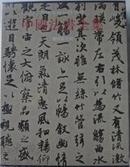 中國法書全集
領茂林脩竹又有清流
湍暎帶左右引以為流觴曲水
列坐其次雖無絲竹管弦之
一觴一詠亦足以暢敘幽情
是日也天朗氣清惠風和暢仰
觀宇宙之大俯察品類之盛
所以遊目騁懷足以極視聽